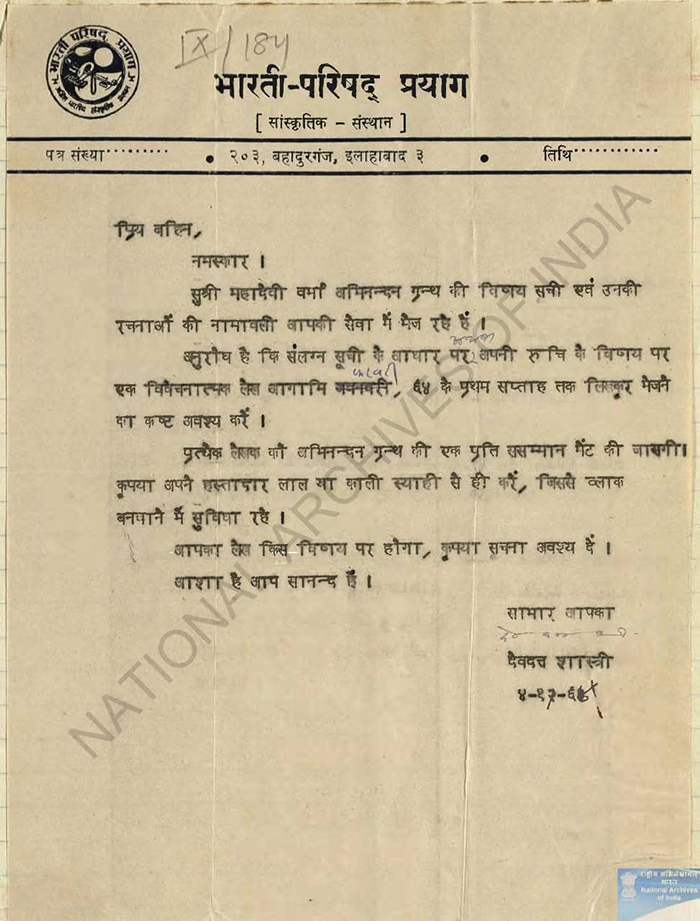 भारती परिषद्, प्रयाग
IX/184
भारती-परिषद् प्रयाग
[ सांस्कृतिक - संस्थान ]
पत्र संख्या·········· ● २०३, बहादुरगंज, इलाहाबाद ३ ● तिथि············
प्रिय बहिन,
नमस्कार ।
सुश्री महादेवी वर्मा अभिनन्दन ग्रन्थ की विषय सूची एवं उनकी
रचनाओं की नामावली आपकी सेवा में भेज रहे हैं ।
अनुरोध है कि संलग्न सूची के आधार पर अपनी रुचि के विषय पर
फरवरी
एक विवेचनात्मक लेख आगामि जनवरी, ६४ के प्रथम सप्ताह तक लिखकर भेजने
का कष्ट अवश्य करें ।
प्रत्येक लेखक को अभिनन्दन ग्रन्थ की एक प्रति ससम्मान भेंट की जायगी।
कृपया अपने हस्ताक्षर लाल या काली स्याही से ही करें, जिससे ब्लाक
बनवाने में सुविधा रहे ।
आपका लेख किस विषय पर होगा, कृपया सूचना अवश्य दें ।
आशा है आप सानन्द हैं ।
साभार आपका
देवदत्त शास्त्री
NATIONAL ARCHIVES OF INDIA
राष्ट्रीय अभिलेखागार
भारत
National Archives
of India